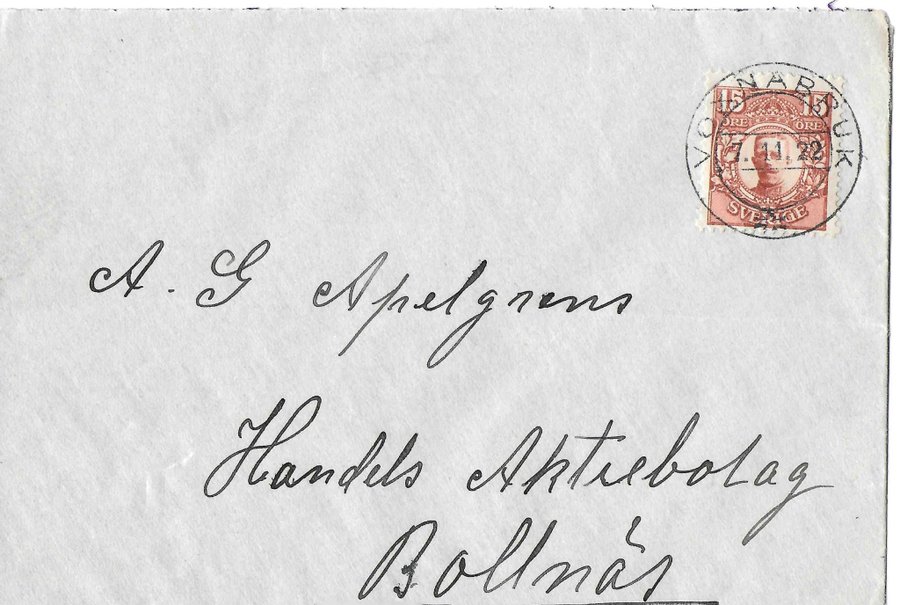 15 15
ÖRE ÖRE
SVERIGE
VOXNABRUK
7.11.22
A. G Apelgrens
Handels Aktiebolag
Bollnäs